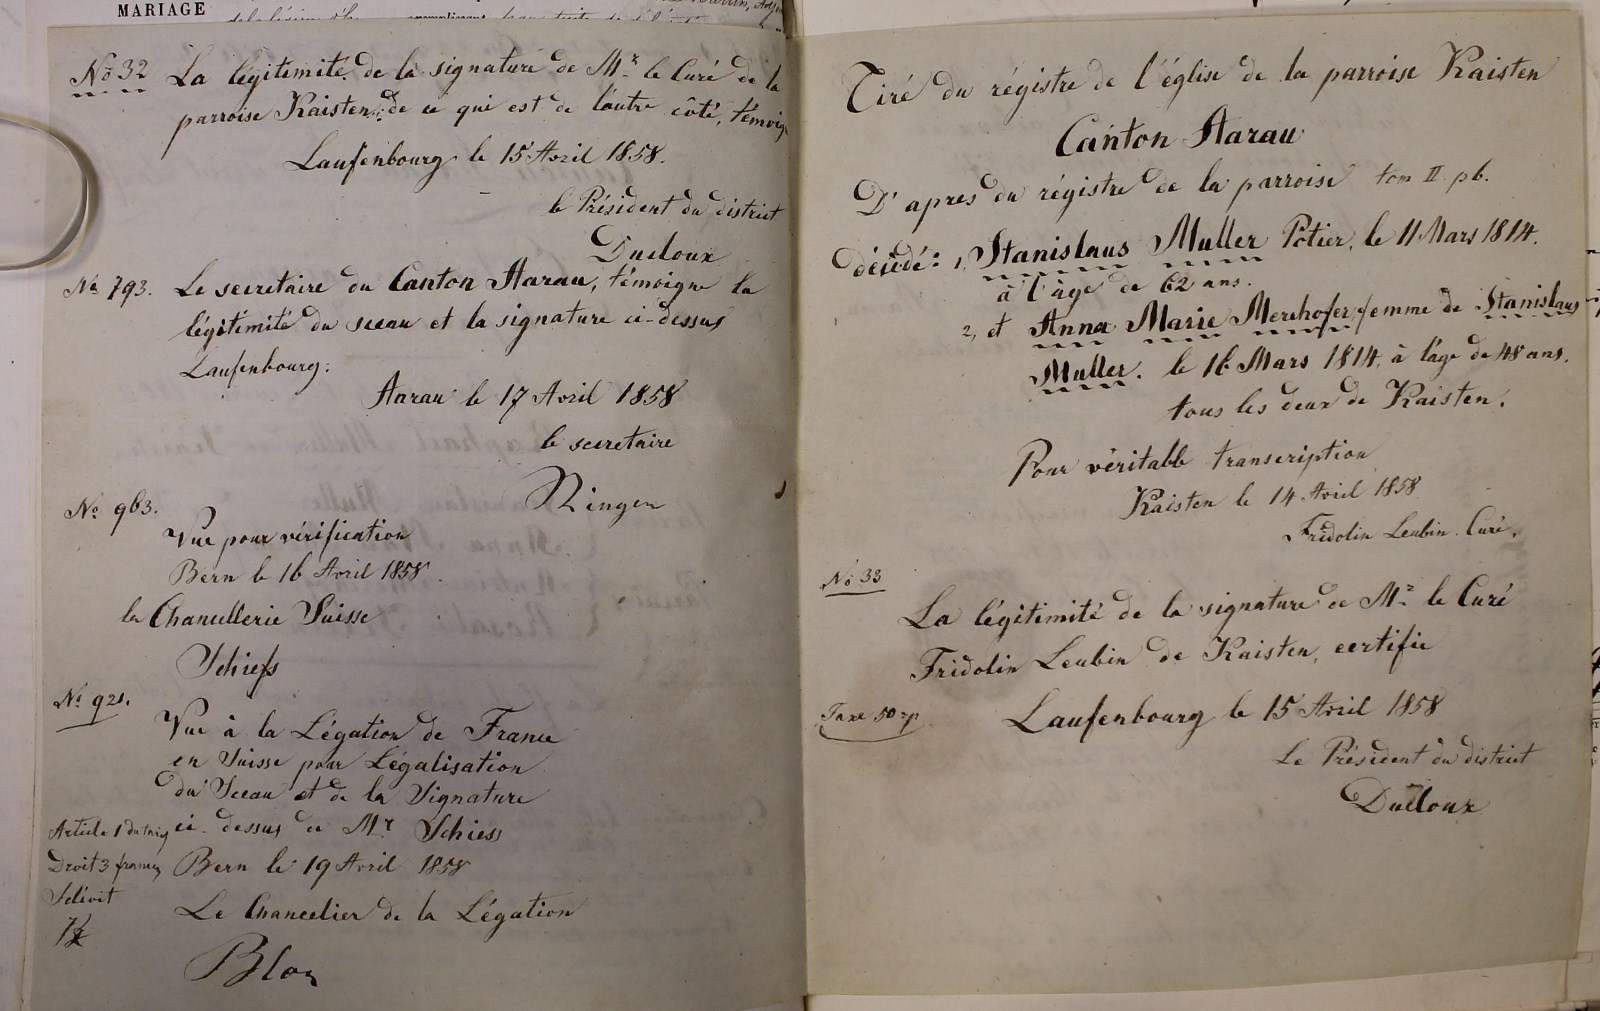 MARIAGE
No 32 La légitimité de la signature de Mr le Curé de la
parroise Kaisten de ce qui est de l'autre côté, témoig
Laufenbourg le 15 Avril 1858.
le Président du district
Ducloux
No 793. Le secretaire du Canton Aarau, témoigne la
légitimité du sceau et la signature ci-dessus
Laufenbourg:
Aarau le 17 Avril 1858
le secretaire
Ringer
No 963.
Vue pour vérification
Bern le 16 Avril 1858.
la Chancellerie Suisse
Schiess
No 921.
Vue à la Légation de France
en Suisse pour Légalisation
du Sceau et de la Signature
ci-dessus de Mr Schiess
Bern le 19 Avril 1858
Le Chancelier de la Légation
Article 1 du
Droit 3 francs
Tiré du régistre de l'église de la parroise Kaisten
Canton Aarau
D'apres du régistre de la parroise tom II. p6.
décédé: 1, Stanislaus Muller Potier, le 11 Mars 1814.
à l'àge de 62 ans.
2, et Anna Marie Merehofer femme de Stanislaus
Muller. le 16 Mars 1814, à l'àge de 48 ans.
tous les deux de Kaisten.
Pour véritable transcription
Kaisten le 14 Avril 1858
Fridolin Leubin Curé.
No 33
La légitimité de la signature de Mr le Curé
Fridolin Leubin de Kaisten, certifie
Taxe 50 rp. Laufenbourg le 15 Avril 1858
Le Président du district
Ducloux